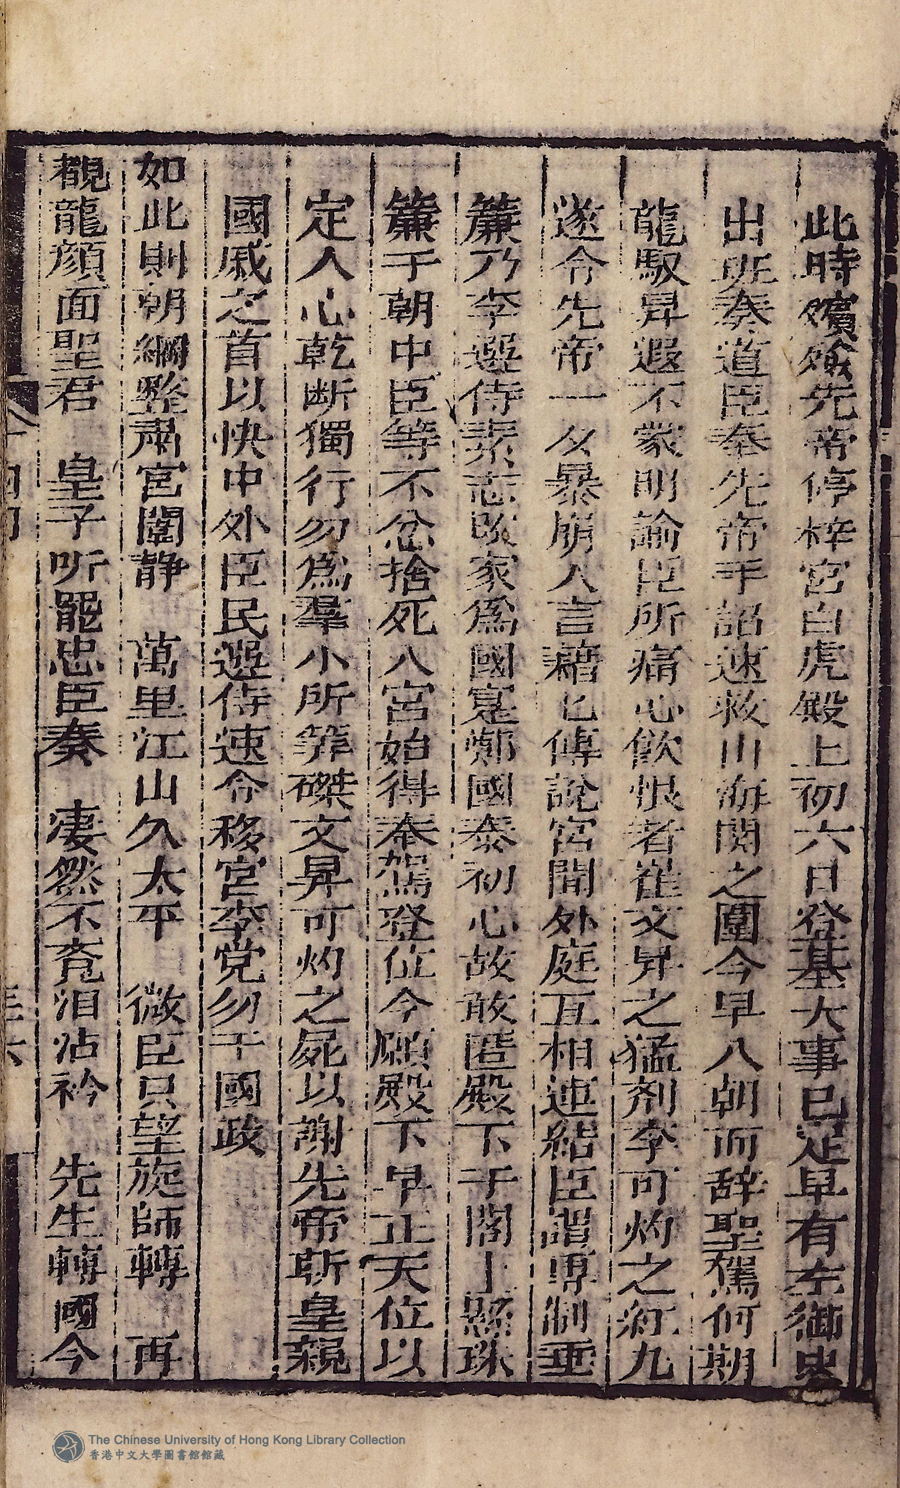 此時殯殮先帝停梓宮白虎殿上初六日登基大事已定早有左御史
出班奏道臣奉先帝手詔速救山海関之圍今早八朝而辞聖駕何期
龍馭昇遐不蒙明諭臣所痛心飲恨者崔文昇之猛剂李可灼之紅九
遂令先帝一夕暴崩人言藉七傳說宮闈外庭互相連結臣謂專制垂
簾乃李選侍素志敗家爲國寔鄭國泰初心故敢匿殿下于閣上懸珠
簾于朝中臣等不忿捨死八宮始得奉駕登位今願殿下早正天位以
定人心乾断獨行勿爲羣小所算磔文昇可灼之屍以謝先帝斬皇親
國戚之首以快中外臣民選侍速令移宮李党勿干國政
如此則朝綱整肅宮闈静　萬里江山久太平　微臣只望旋師轉　再
觀龍顔面聖君　皇子听罷忠臣奏　凄然不覔泪沾衿　先生轉國今